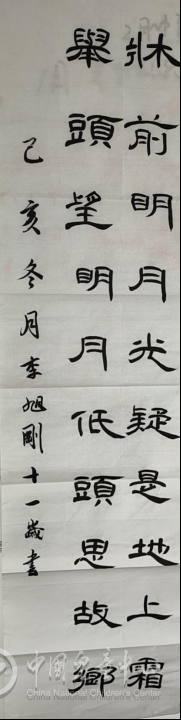 牀前明月光疑是地上霜
舉頭望明月低頭思故鄉
己亥冬月李旭剛十一歲書
中国儿童中心
China National Children's Center